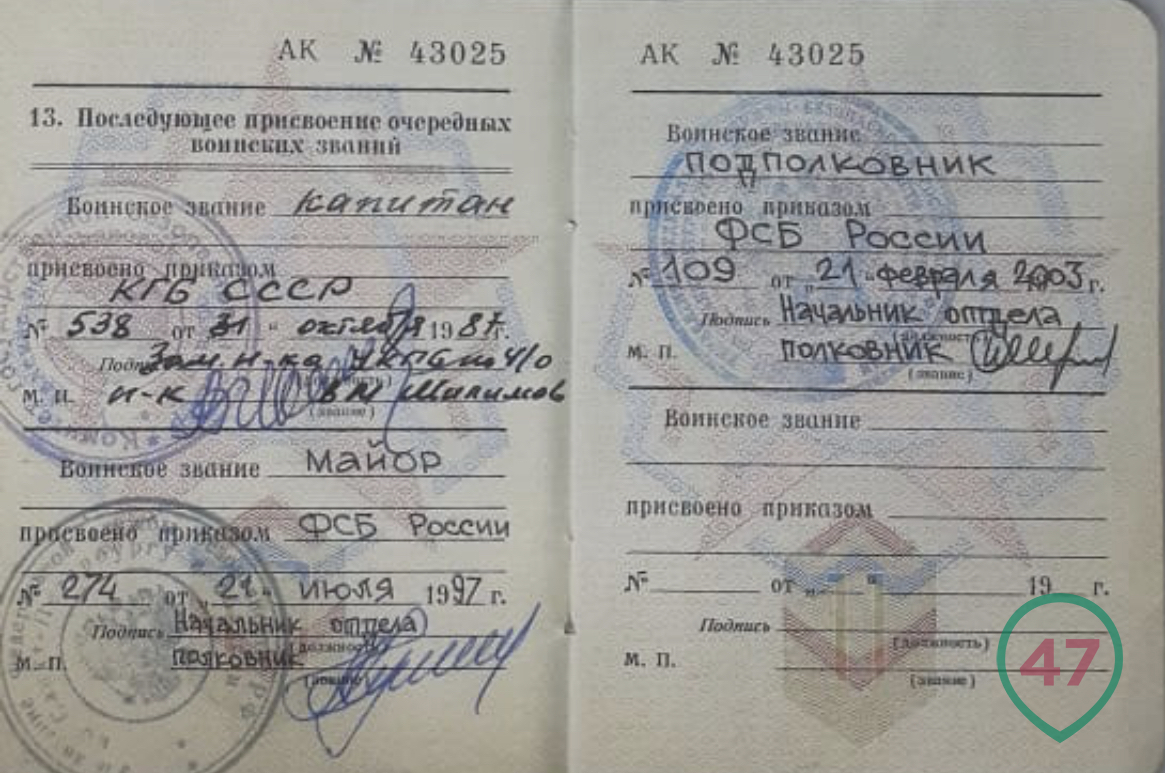 АК № 43025
13. Последующее присвоение очередных
воинских званий
Воинское звание капитан
присвоено приказом
КГБ СССР
№ 538 от 31 " октября 1987г.
Подпись Зам. н-ка УКГБ по Ч/О
(должность)
М. П. п-к
(звание)
Воинское звание майор
присвоено приказом ФСБ России
№ 274 от „21" июля 1997 г.
Подпись Начальник отдела
(должность)
М. П. полковник
(звание)
АК № 43025
Воинское звание
подполковник
присвоено приказом
ФСБ России
№ 109 от „21" февраля 2003 г.
Подпись Начальник отдела
(должность)
М. П. полковник
(звание)
Воинское звание
присвоено приказом
№ от „ " 19 г.
Подпись
(должность)
М. П.
(звание)
47